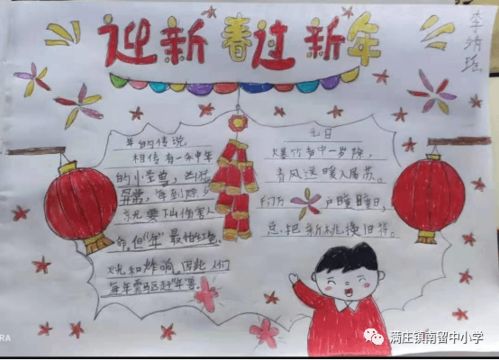 迎新春过新年
李靖瑶
年的传说
相传有一种叫年
的小怪兽,
异常,每到除夕
就要下山伤害人
命,但"年"最怕红色,
火光和炸响,因此人们
每年
元日
爆竹声中一岁除,
春风送暖入屠苏。
千门万户曈曈日,
总把新桃换旧符。
满庄镇南留中小学
RA